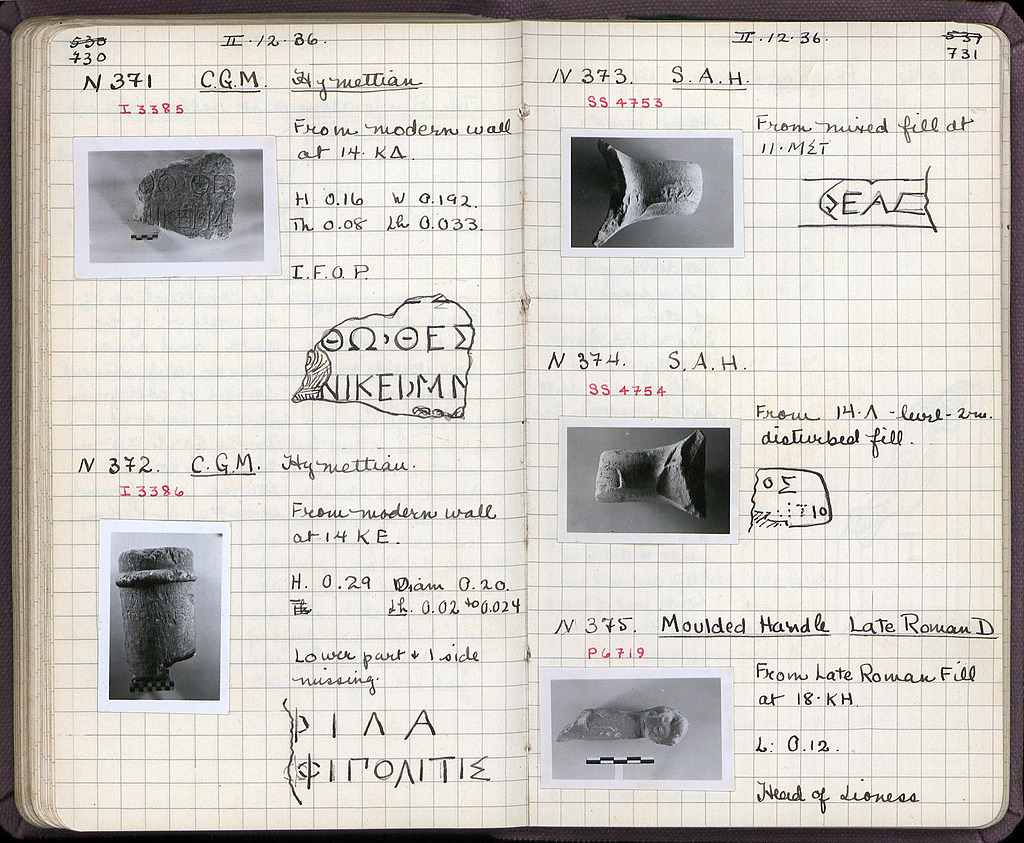 530
730
II·12·36.
N 371 C.G.M. Hymettian
I 3385
From modern wall
at 14·ΚΔ.
H 0.16 W 0.192.
Th 0.08 Lh 0.033.
I.F.O.P.
ΘΩ·ΘΕΣ
ΝΙΚΕΙ
N 372. C.G.M. Hymettian.
I 3386
From modern wall
at 14 ΚΕ.
H. 0.29 Diam 0.20.
Th Lh. 0.02 to 0.024
Lower part + 1 side
missing.
ΙΛΑ
ΦΙΠΟΛΙΤΙΣ
II·12·36.
537
731
N 373. S.A.H.
SS 4753
From mixed fill at
11·ΜΣΤ
ΘΕΑΣ
N 374. S.A.H.
SS 4754
From 14·Λ - level - 2m.
disturbed fill.
ΟΣ
ΤΙΟ
N 375. Moulded Handle Late Roman D
P 6719
From Late Roman Fill
at 18·ΚΗ.
L: 0.12.
Head of Lioness